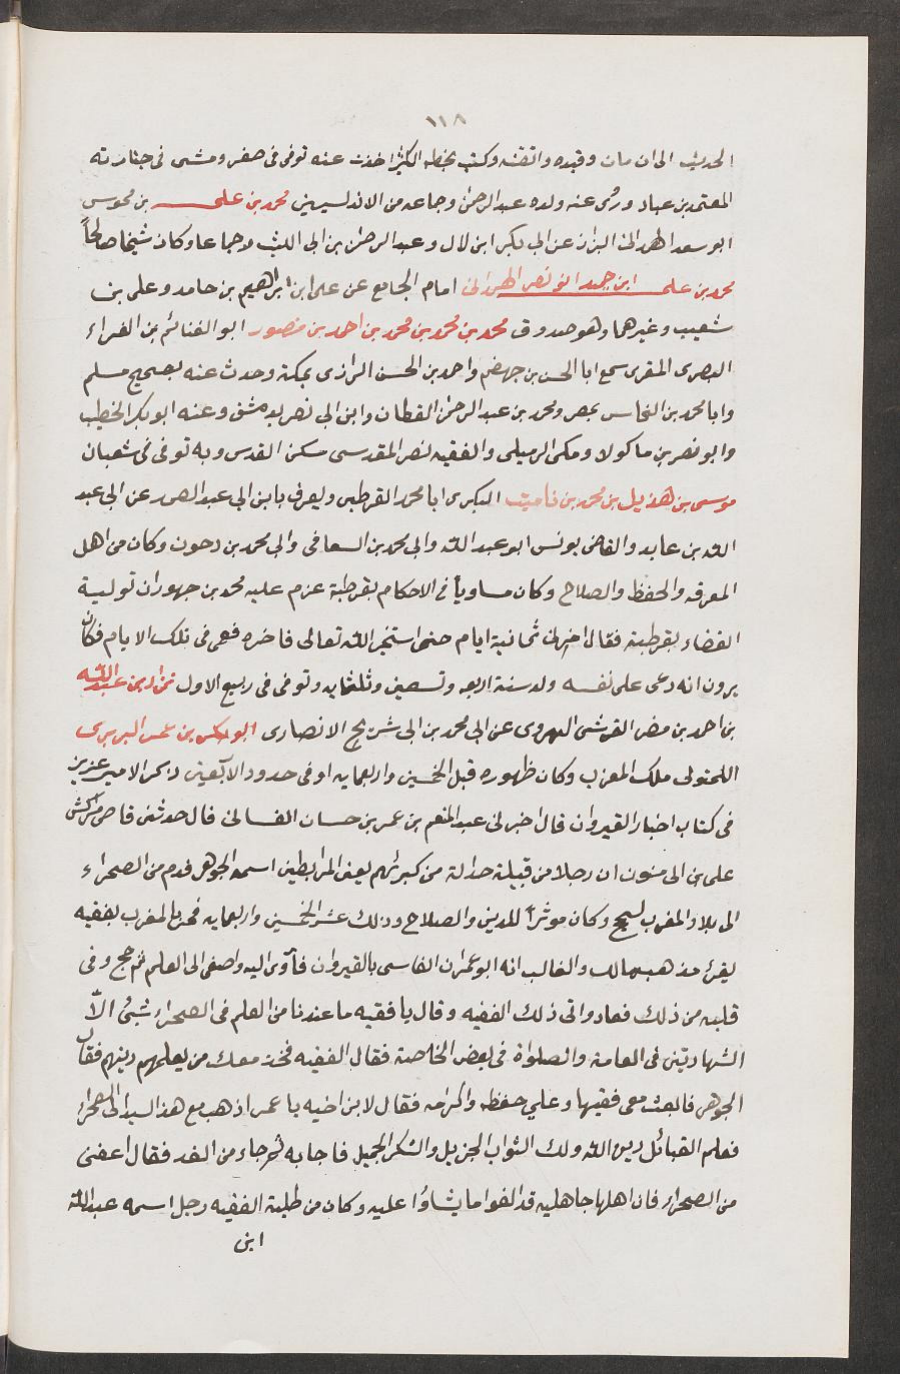 ١١٨
الحديث الى ان مات وقيده واتقنه وكتب بخطه الكثير اخذت عنه توفى فى صفر ومشى فى جنازته
المعتمد بن عباد وروى عنه ولده عبد الرحمن وجماعه من الاندلسيين محمد بن على بن محوس
ابو سعد الهمدانى البزاز عن ابى بكر ابن لال وعبد الرحمن بن ابى الليث وجماعا وكان شيخا صالحاً
محمد بن على ابن حميد ابو نصر الهمدانى امام الجامع عن على ابن ابراهيم بن حامد وعلى بن
شعيب وغيرهما وهو صدوق محمد بن محمد بن محمد بن احمد بن منصور ابو الغنائم بن الغراء
البصرى المقرى سمع ابا الحسن بن جهضم واحمد بن الحسن الرازى بمكة وحدث عنه بصحيح مسلم
وابا محمد بن النحاس بمصر ومحمد بن عبد الرحمن القطان وابن ابى نصر بدمشق وعنه ابو بكر الخطيب
وابو نصر بن ماكولا ومكى الرميلى والفقيه نصر المقدسى سكن القدس وبه توفى فى شعبان
موسى بن هذيل بن محمد بن تاميت البكرى ابا محمد القرطبى ويعرف بابن ابى عبد الصمد عن ابى عبد
الله بن عابد والقاضى يونس ابو عبد الله وابى محمد بن السعافى وابى محمد بن دحون وكان من اهل
المعرفه والحفظ والصلاح وكان مساوياً فى الاحكام بقرطبة عزم عليه محمد بن جهور ان تولية
القضاء بقرطبة فقال اخرنى ثمانية ايام حتى استخير الله تعالى فاخره فعمى فى تلك الايام فكانوا
يرون انه دعى على نفسه ولد سنة اربعه وتسعين وثلثمايه وتوفى فى ربيع الاول نزار بن عبد الله
بن احمد بن مضر القرشى الهروى عن ابى محمد بن ابى شريح الانصارى ابو بكر بن عمر البربرى
اللمتونى ملك المغرب وكان ظهوره قبل الخمسين واربعمايه او فى حدود الاربعين ذكر الامير عزيز
فى كتاب اخبار القيروان قال اخبرنى عبد المنعم بن عمر بن حسان الغسانى قال حدثنى قاضى مراكش
على بن ابى منون ان رجلا من قبيلة جدالة من كبرائهم يعنى المرابطين اسمه الجوهر قدم من الصحراء
الى بلاد المغرب ليحج وكان موثراً للدين والصلاح وذلك عشر الخمسين واربعمايه فمر بالمغرب بفقيه
يقرئ مذهب مالك والغالب انه ابو عمران الفاسى بالقيروان فأوى اليه واصغى الى العلم ثم حج وفى
قلبه من ذلك فعاد واتى ذلك الفقيه وقال يا فقيه ما عندنا من العلم فى الصحراء شئ الّا
الشهادتين فى العامة والصلواة فى بعض الخاصة فقال الفقيه فخذ معك من يعلمهم دينهم فقال
الجوهر فابعث معى فقيها وعلي حفظه واكرامه فقال لابن اخيه يا عمر اذهب مع هذا السيد الى الصحراء
فعلم القبائل دين الله ولك الثواب الجزيل والشكر الجميل فاجابه ثم جاء من الغد فقال اعفنى
من الصحراء فان اهلها جاهليه قد الفوا ما يشاؤا عليه وكان من طلبة الفقيه رجل اسمه عبد الله
ابن